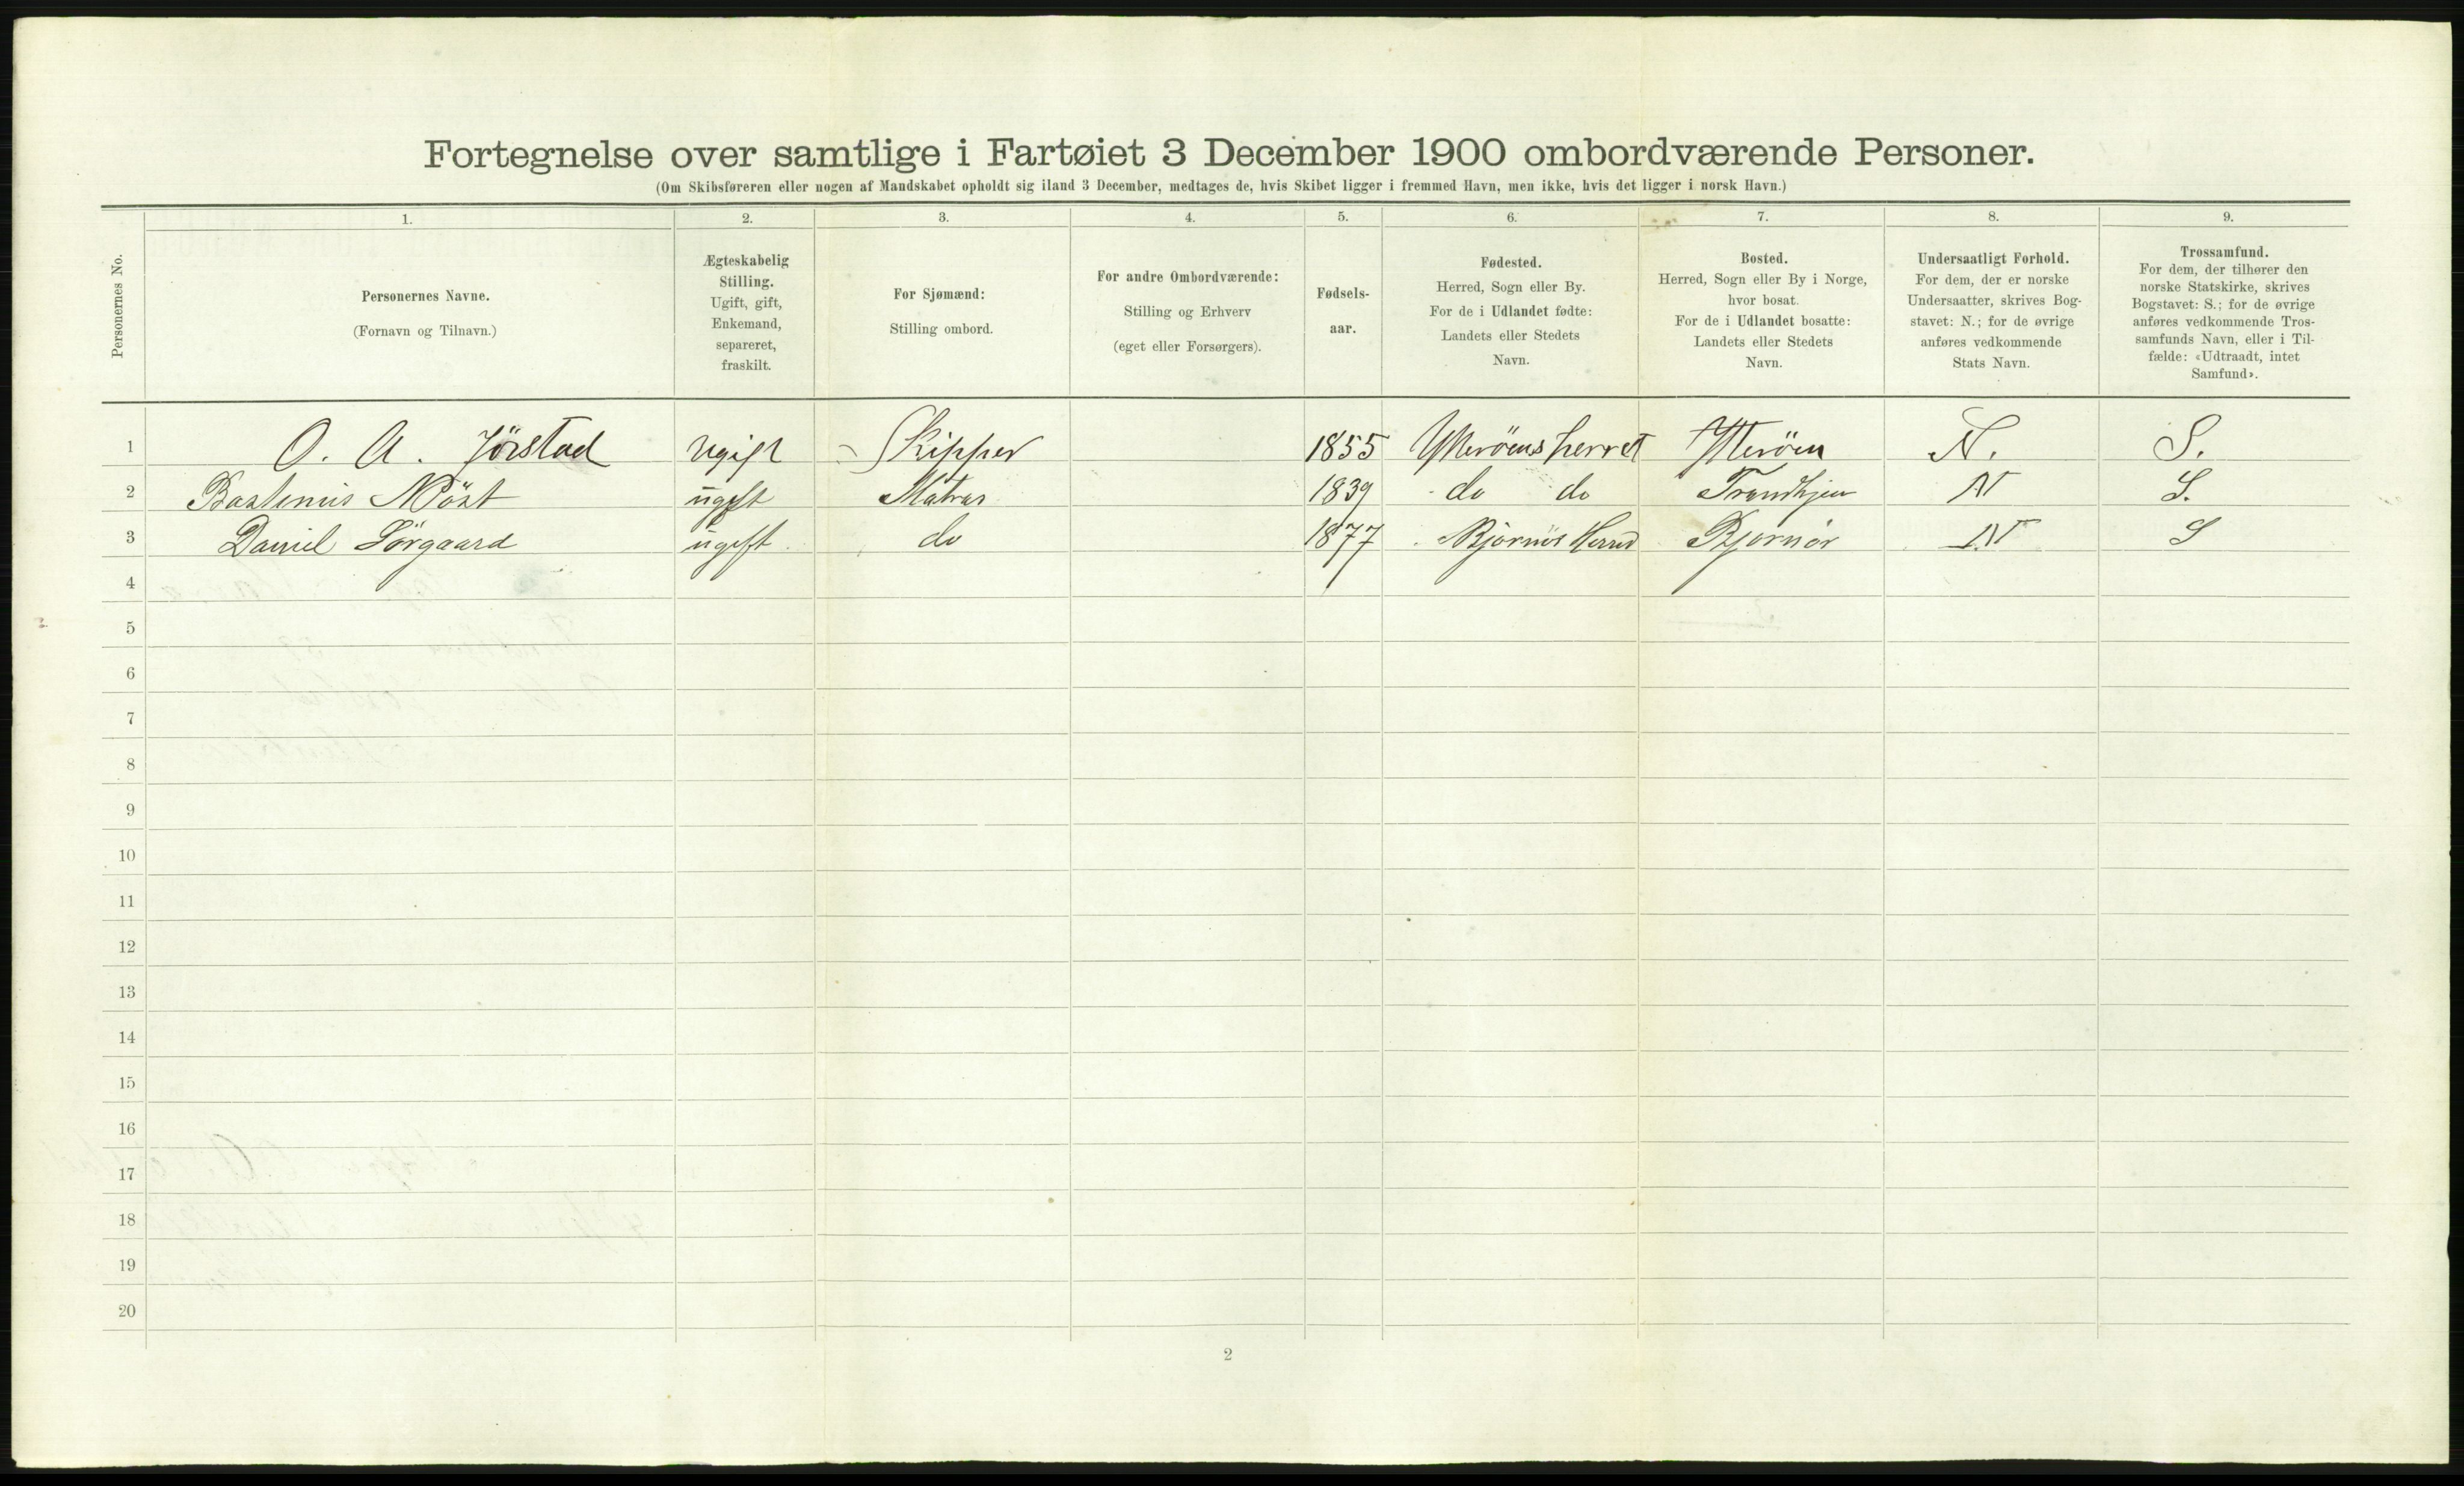 Fortegnelse over samtlige i Fartøiet 3 December 1900 ombordværende Personer.
(Om Skibsføreren eller nogen af Mandskabet opholdt sig iland 3 December, medtages de, hvis Skibet ligger i fremmed Havn, men ikke, hvis det ligger i norsk Havn.)
Personernes No.
1.
Personernes Navne.
(Fornavn og Tilnavn.)
2.
Ægteskabelig
Stilling.
Ugift, gift,
Enkemand,
separeret,
fraskilt.
3.
For Sjømænd:
Stilling ombord.
4.
For andre Ombordværende:
Stilling og Erhverv
(eget eller Forsørgers).
5.
Fødsels-
aar.
6.
Fødested.
Herred, Sogn eller By.
For de i Udlandet fødte:
Landets eller Stedets
Navn.
7.
Bosted.
Herred, Sogn eller By i Norge,
hvor bosat.
For de i Udlandet bosatte:
Landets eller Stedets
Navn.
8.
Undersaatligt Forhold.
For dem, der er norske
Undersaatter, skrives Bog-
stavet: N.; for de øvrige
anføres vedkommende
Stats Navn.
9.
Trossamfund.
For dem, der tilhører den
norske Statskirke, skrives
Bogstavet: S.; for de øvrige
anføres vedkommende Tros-
samfunds Navn, eller i Til-
fælde: «Udtraadt, intet
Samfund».
1 O. A. Jörstad ugift Skipper 1855 Ytteröens herret Ytteröen N. S.
2 Röst ugift Matros 1839 do do Trondhjem N S.
3 Daniel Sörgaard ugift do 1877 Bjørnör Herred Bjørnör N S
4
5
6
7
8
9
10
11
12
13
14
15
16
17
18
19
20
2